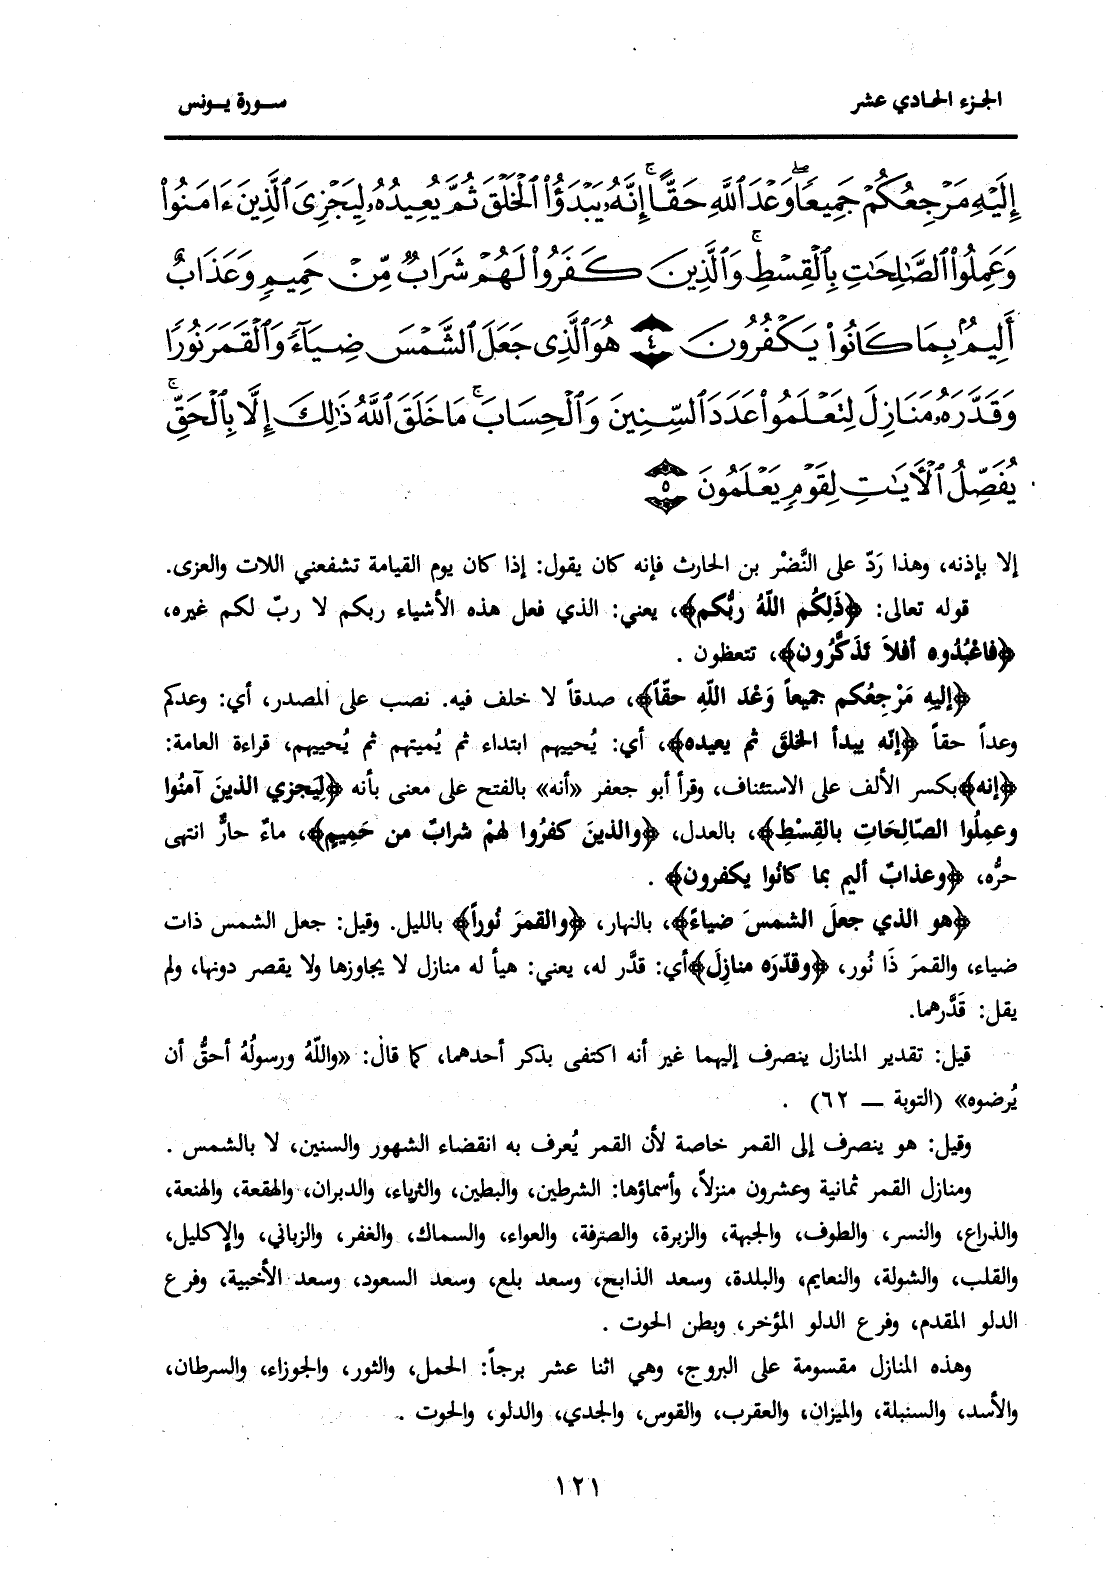 الجزء الحادي عشر
سورة يونس
إِلَيْهِ مَرْجِعُكُمْ جَمِيعًا ۖ وَعْدَ ٱللَّهِ حَقًّا ۚ إِنَّهُۥ يَبْدَؤُا۟ ٱلْخَلْقَ ثُمَّ يُعِيدُهُۥ لِيَجْزِىَ ٱلَّذِينَ ءَامَنُوا۟
وَعَمِلُوا۟ ٱلصَّـٰلِحَـٰتِ بِٱلْقِسْطِ ۚ وَٱلَّذِينَ كَفَرُوا۟ لَهُمْ شَرَابٌ مِّنْ حَمِيمٍ وَعَذَابٌ
أَلِيمٌۢ بِمَا كَانُوا۟ يَكْفُرُونَ ٤ هُوَ ٱلَّذِى جَعَلَ ٱلشَّمْسَ ضِيَآءً وَٱلْقَمَرَ نُورًا
وَقَدَّرَهُۥ مَنَازِلَ لِتَعْلَمُوا۟ عَدَدَ ٱلسِّنِينَ وَٱلْحِسَابَ ۚ مَا خَلَقَ ٱللَّهُ ذَٰلِكَ إِلَّا بِٱلْحَقِّ ۚ
يُفَصِّلُ ٱلْـَٔايَـٰتِ لِقَوْمٍ يَعْلَمُونَ ٥
إلا بإذنه، وهذا رَدّ على النَّضْر بن الحارث فإنه كان يقول: إذا كان يوم القيامة تشفعني اللات والعزى.
قوله تعالى: ﴿ذَلِكُم اللّهُ ربُّكم﴾، يعني: الذي فعل هذه الأشياء ربكم لا ربّ لكم غيره،
﴿فاعْبُدُوه أفلاَ تَذَكَّرُون﴾، تتعظون .
﴿إليهِ مَرْجِعُكم جميعاً وَعْدَ اللّهِ حقّاً﴾، صدقاً لا خلف فيه. نصب على المصدر، أي: وعدكم
وعداً حقاً ﴿إنّه يبدأ الخلقَ ثم يعيده﴾، أي: يُحييهم ابتداء ثم يُميتهم ثم يُحييهم، قراءة العامة:
﴿إنه﴾بكسر الألف على الاستئناف، وقرأ أبو جعفر «أنه» بالفتح على معنى بأنه ﴿لِيَجزي الذينَ آمنُوا
وعمِلُوا الصّالِحَاتِ بالقِسْطِ﴾، بالعدل، ﴿والذينَ كفرُوا لهمْ شرابٌ من حَمِيمٍ﴾، ماءٌ حارٌّ انتهى
حرُّه، ﴿وعذابٌ أليم بما كانُوا يكفرون﴾ .
﴿هو الذي جعلَ الشمسَ ضياءً﴾، بالنهار، ﴿والقمرَ نُوراً﴾ بالليل. وقيل: جعل الشمس ذات
ضياء، والقمرَ ذَا نُور، ﴿وقدّرَه منازِلَ﴾أي: قدَّر له، يعني: هيأ له منازل لا يجاوزها ولا يقصر دونها، ولم
يقل: قَدَّرهما.
قيل: تقدير المنازل ينصرف إليهما غير أنه اكتفى بذكر أحدهما، كما قال: «واللّهُ ورسولُهُ أحقُّ أن
يُرضوه» (التوبة ــ ٦٢) .
وقيل: هو ينصرف إلى القمر خاصة لأن القمر يُعرف به انقضاء الشهور والسنين، لا بالشمس .
ومنازل القمر ثمانية وعشرون منزلاً، وأسماؤها: الشرطين، والبطين، والثرياء، والدبران، والهقعة، والهنعة،
والذراع، والنسر، والطوف، والجبهة، والزبرة، والصترفة، والعواء، والسماك، والغفر، والزباني، والإكليل،
والقلب، والشولة، والنعايم، والبلدة، وسعد الذابح، وسعد بلع، وسعد السعود، وسعد الأخبية، وفرع
الدلو المقدم، وفرع الدلو المؤخر، وبطن الحوت .
وهذه المنازل مقسومة على البروج، وهي اثنا عشر برجاً: الحمل، والثور، والجوزاء، والسرطان،
والأسد، والسنبلة، والميزان، والعقرب، والقوس، والجدي، والدلو، والحوت .
١٢١